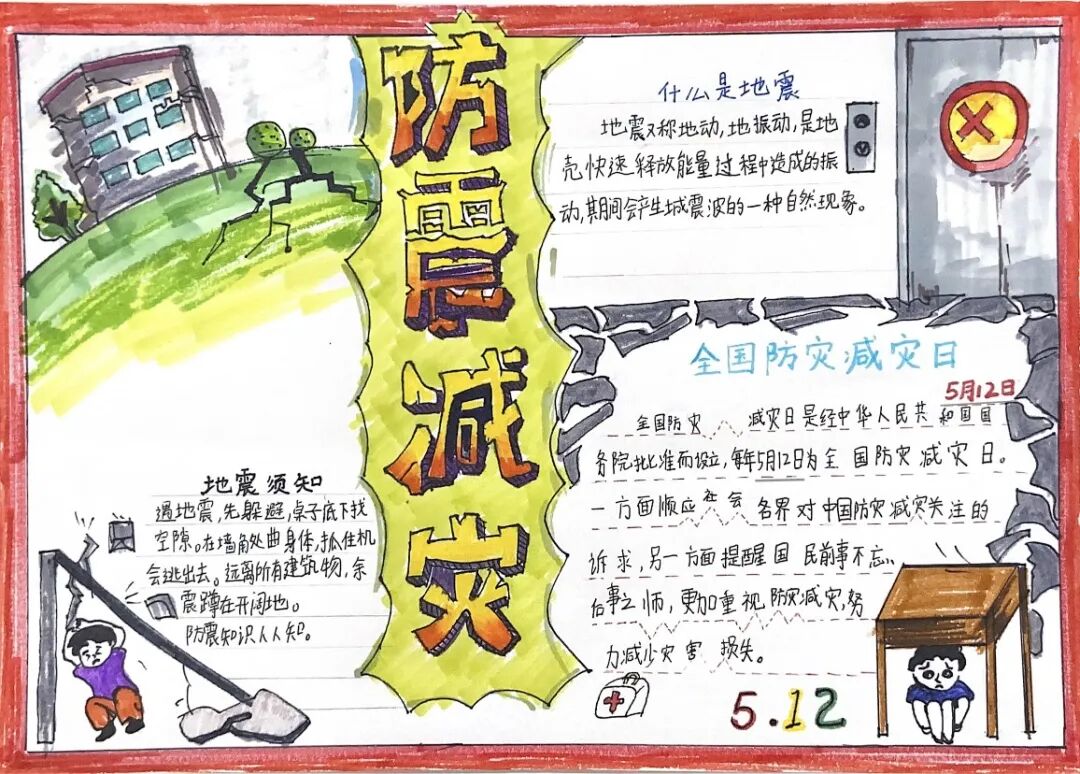 防震减灾
什么是地震
地震又称地动,地振动,是地
壳快速释放能量过程中造成的振
动,期间会产生城震波的一种自然现象。
全国防灾减灾日
5月12日
全国防灾 减灾日是经中华人民共和国国
务院批准而设立,每年5月12日为全国防灾减灾日。
一方面顺应社会各界对中国防灾减灾关注的
诉求,另一方面提醒国民前事不忘、
后事之师,更加重视防灾减灾,努
力减少灾害损失。
5.12
地震须知
遇地震,先躲避,桌子底下找
空隙。在墙角处曲身体,抓住机
会逃出去。远离所有建筑物,余
震蹲在开阔地。
防震知识人人知。